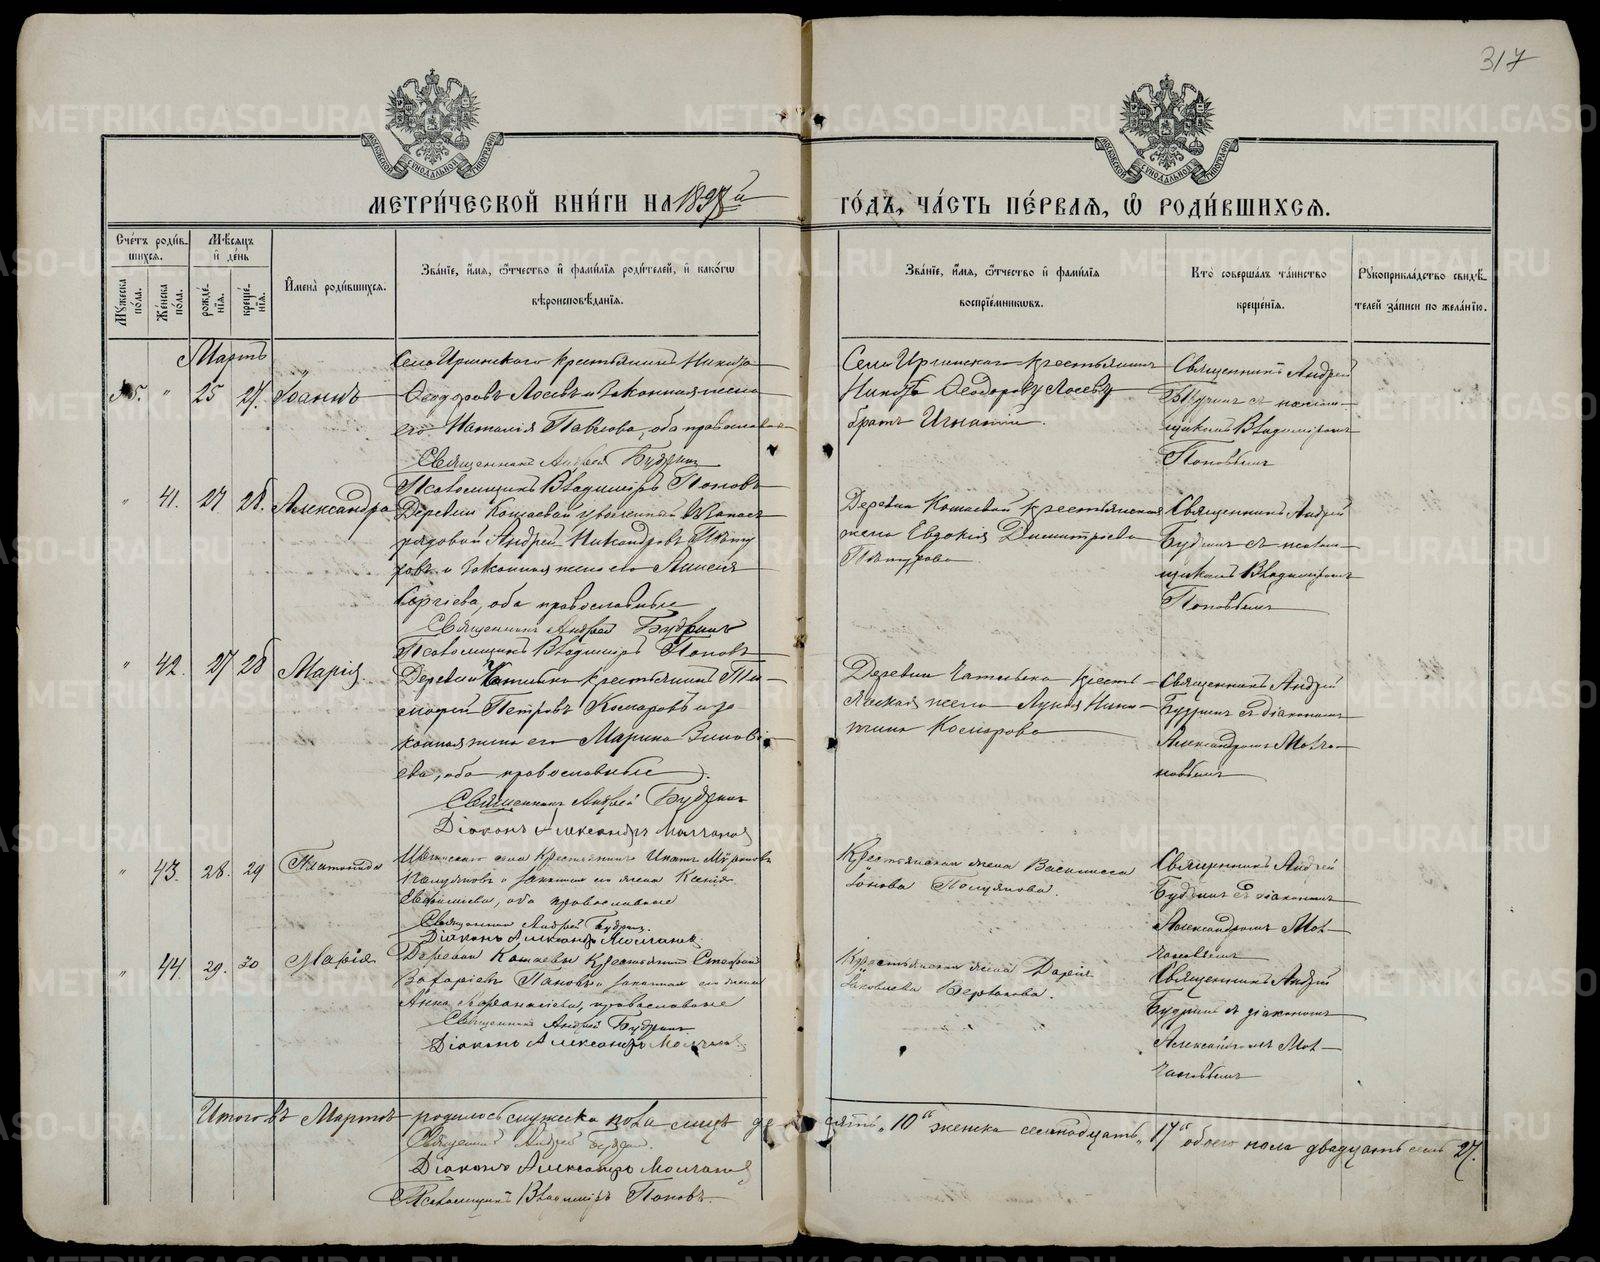 317
МЕТРИ́ЧЕСКОЙ КНИ́ГИ НА 1897й ГО́ДЪ, ЧА́СТЬ ПЕ́РВАЯ, Ѿ РОДИ́ВШИХСЯ.
Сче́тъ роди́вшихся.
Му́жеска по́ла.
Же́нска по́ла.
Мѣ́сяцъ и де́нь
рожде́нія.
креще́нія.
Имена̀ роди́вшихся.
Зва́ніе, и́мя, о́тчество и фами́лія роди́телей, и како́гѡ
вѣроисповѣ́данія.
Зва́ніе, и́мя, о́тчество и фами́лія
воспріе́мниковъ.
Кто̀ соверша́лъ та́инство
креще́нія.
Рукоприкла́дство свидѣ́-
телей за́писи по жела́нію.
Мартъ
25 27. Іоаннъ
Села Иргинскаго крестьянинъ
Ѳеодоровъ Лосевъ и законная жена
его Наталія Павлова, оба православн
Священникъ Андрей Будринъ
Псаломщикъ Владиміръ Поповъ
Села Иргинскаго крестьянинъ
Ѳеодоровъ Лосевъ
братъ Игнатій.
Священникъ Андрей
Будринъ съ псалом-
щикомъ Владиміромъ
Поповымъ
" 41. 27 28. Александра
Деревни Кошаевой уволенный въ запасъ
рядовой Андрей Никандровъ
и законная жена его
Сергіева, оба православные
Священникъ Андрей Будринъ
Псаломщикъ Владиміръ Поповъ
Деревни Кошаевой крестьянская
жена Евдокія Димитріева
Священникъ Андрей
Будринъ съ псалом-
щикомъ Владиміромъ
Поповымъ
" 42. 27 28 Марія
Деревни крестьянинъ Ти-
мофей Петровъ Комаровъ и за
конная жена его Марина Зиновь
ева, оба православные.
Священникъ Андрей Будринъ
Діаконъ Александръ Молчановъ
Деревни кресть-
янская жена Лукія Ники-
тина Комарова
Священникъ Андрей
Будринъ съ діакономъ
Александромъ Молча-
новымъ
" 43. 28. 29 Платонида
Иргинскаго села крестьянинъ Игнатъ
Полуяновъ и законная его жена Ксенія
оба православные
Священникъ Андрей Будринъ.
Діаконъ Александръ Молчановъ.
Крестьянская жена Василисса
Іонова Полуянова.
Священникъ Андрей
Будринъ съ діакономъ
Александромъ Мол-
чановымъ
" 44. 29. 30 Марія
Деревни Кошаевы крестьянинъ Стефанъ
Захаріевъ Пановъ и законная его жена
Анна Аѳанасіева, православные
Священникъ Андрей Будринъ
Діаконъ Александръ Молчановъ.
Крестьянская жена Дарія
Іаковлева
Священникъ Андрей
Будринъ съ діакономъ
Александромъ Мол-
чановымъ
Итого въ Мартѣ родилось мужеска пола лицъ десять „10“ женска семнадцать „17“ обоего пола двадцать семь 27.
Священникъ Андрей Будринъ.
Діаконъ Александръ Молчановъ
Псаломщикъ Владиміръ Поповъ.
METRIKI.GASO-URAL.RU